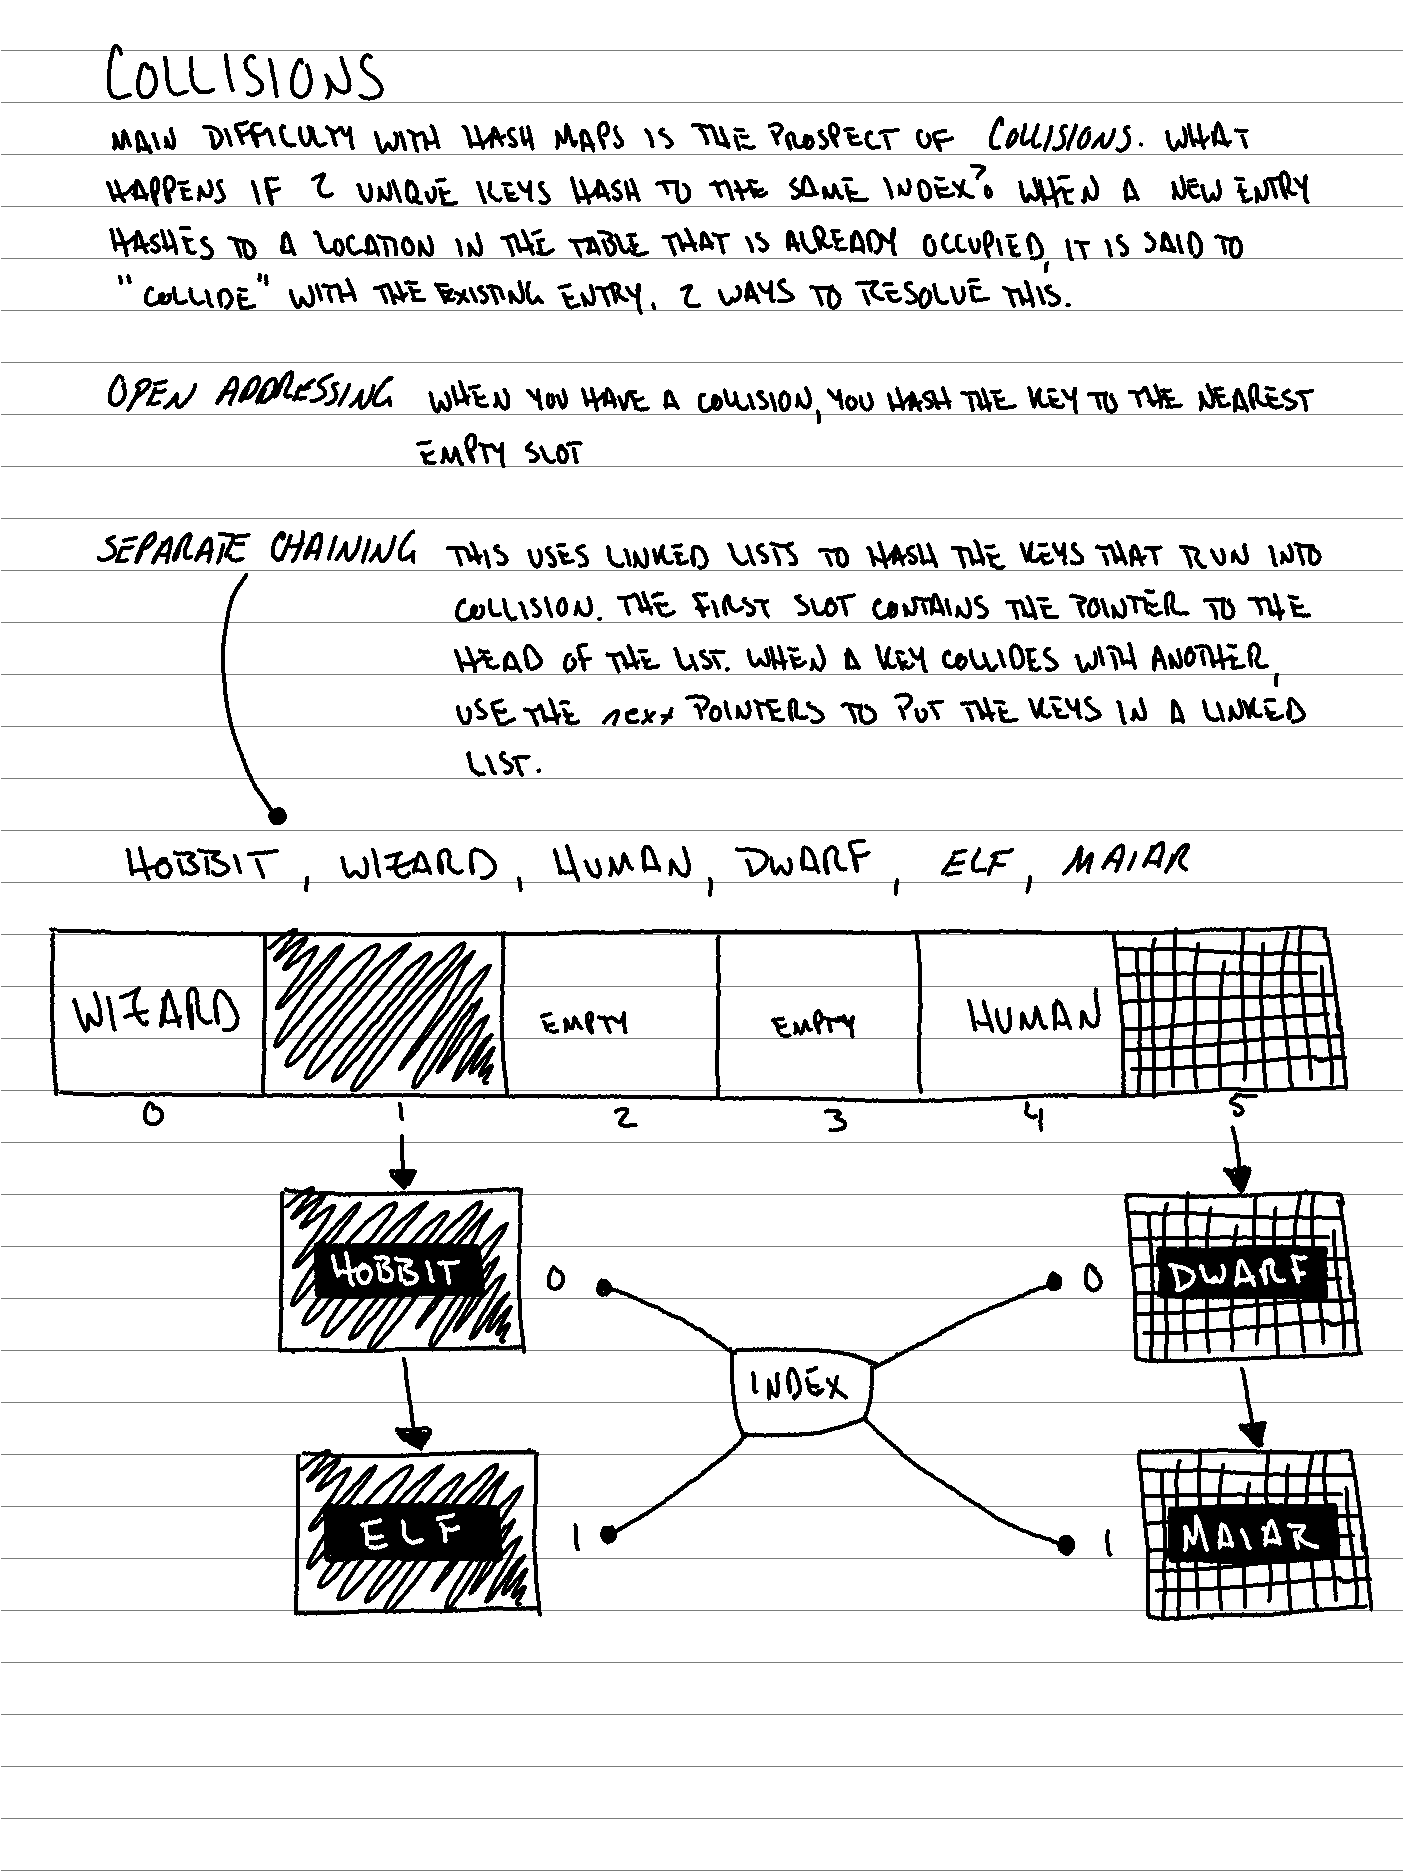 COLLISIONS
MAIN DIFFICULTY WITH HASH MAPS IS THE PROSPECT OF COLLISIONS. WHAT
HAPPENS IF 2 UNIQUE KEYS HASH TO THE SAME INDEX? WHEN A NEW ENTRY
HASHES TO A LOCATION IN THE TABLE THAT IS ALREADY OCCUPIED, IT IS SAID TO
"COLLIDE" WITH THE EXISTING ENTRY. 2 WAYS TO RESOLVE THIS.
OPEN ADDRESSING WHEN YOU HAVE A COLLISION, YOU HASH THE KEY TO THE NEAREST
EMPTY SLOT
SEPARATE CHAINING THIS USES LINKED LISTS TO HASH THE KEYS THAT RUN INTO
COLLISION. THE FIRST SLOT CONTAINS THE POINTER TO THE
HEAD OF THE LIST. WHEN A KEY COLLIDES WITH ANOTHER,
USE THE next POINTERS TO PUT THE KEYS IN A LINKED
LIST.
HOBBIT, WIZARD, HUMAN, DWARF, ELF, MAIAR
WIZARD EMPTY EMPTY HUMAN
0 1 2 3 4 5
HOBBIT 0 0 DWARF
INDEX
ELF 1 1 MAIAR